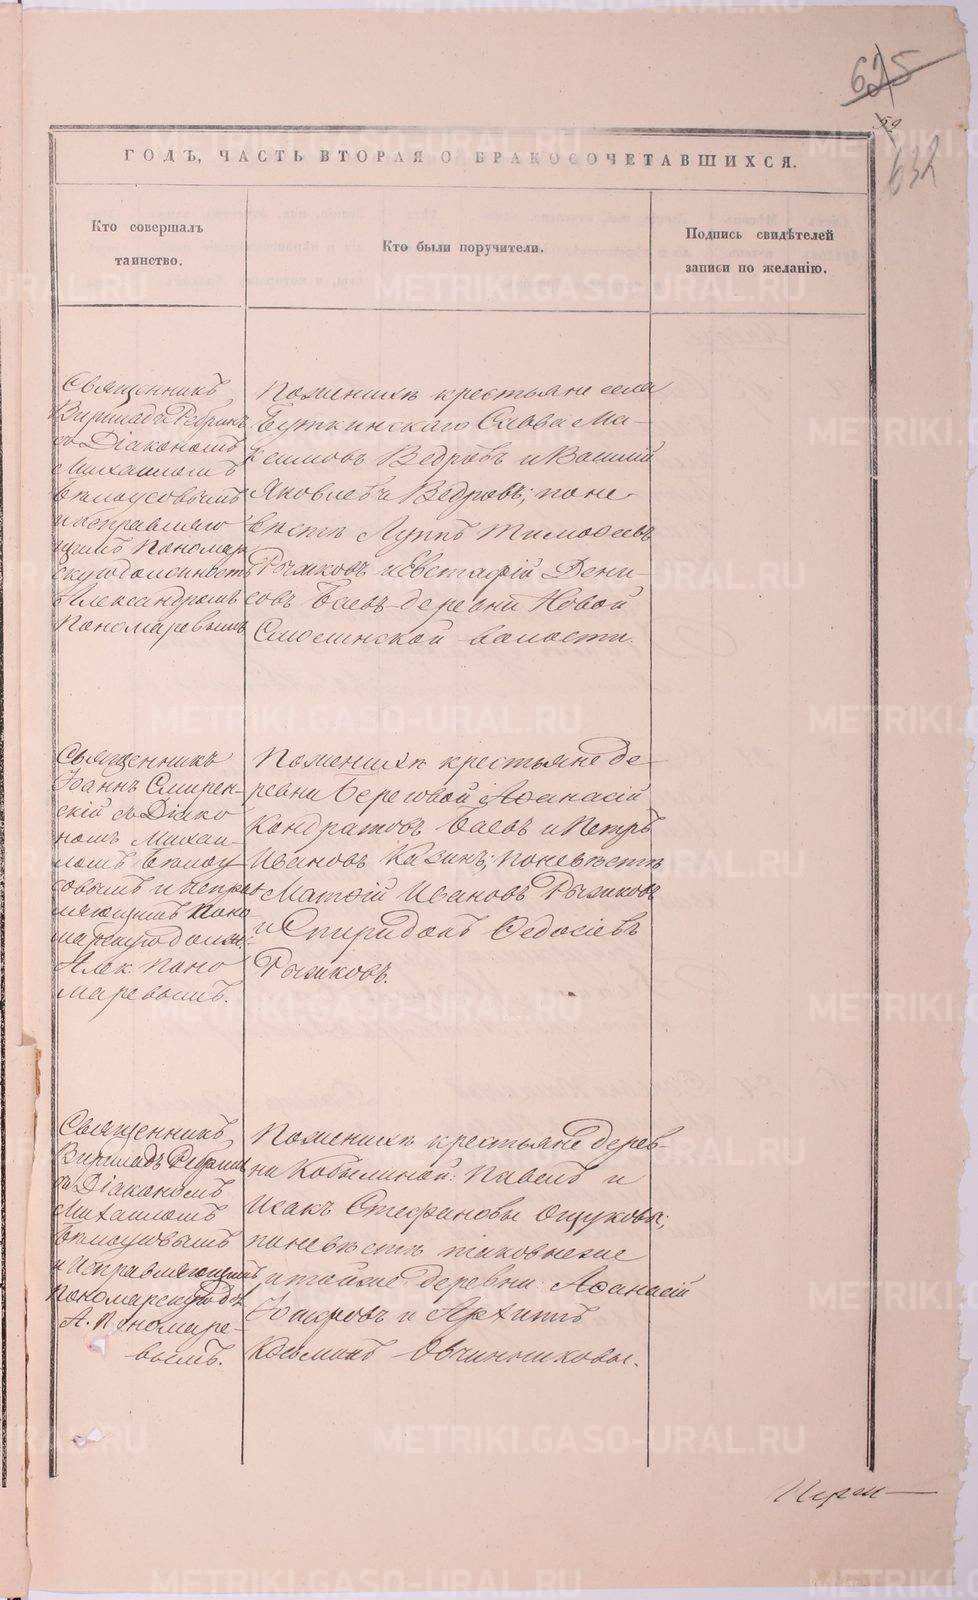 625
59
632
ГОДЪ, ЧАСТЬ ВТОРАЯ О БРАКОСОЧЕТАВШИХСЯ.
Кто совершалъ
таинство.
Кто были поручители.
Подпись свидѣтелей
записи по желанію.
Священникъ
съ Діакономъ
Михаиломъ
Бѣлоусовымъ
и исправляю-
щимъ Пономар-
скую должность
Александромъ
Пономаревымъ
По женихѣ крестьяне села
Буткинскаго Савва Ма-
ксимовъ Ведровъ и Василій
Яковлевъ Ведровъ; по не-
вѣстѣ Луппъ Тимофеевъ
Рыжковъ и Евстафій Дени-
совъ Баевъ деревни Новой
Смолинской волости.
Священникъ
Іоаннъ Смирен-
скій съ Діако
номъ Михаи-
ломъ Бѣлоу
совымъ и исправ
ляющимъ Поно-
марскую должн:
Алек. Поно
маревымъ.
По женихѣ крестьяне де-
ревни Береговой Аѳанасій
Кондратовъ Баевъ и Петръ
Ивановъ Казинъ; по невѣстѣ
Матѳій Ивановъ Рыжковъ
и Спиридонъ Ѳедосіевъ
Рыжковъ.
Священникъ
съ Діакономъ
Михаиломъ
Бѣлоусовымъ
и исправляющимъ
Пономарскую д.
А. Пономаре-
вымъ.
По женихѣ крестьяне дерев-
ни Кобылиной: Павелъ и
Исакъ Стефановы Ощуковы;
по невѣстѣ таковые же
и той же деревни: Аѳанасій
и Архипъ
Козьминъ Овчинниковы.
METRIKI.GASO-URAL.RU